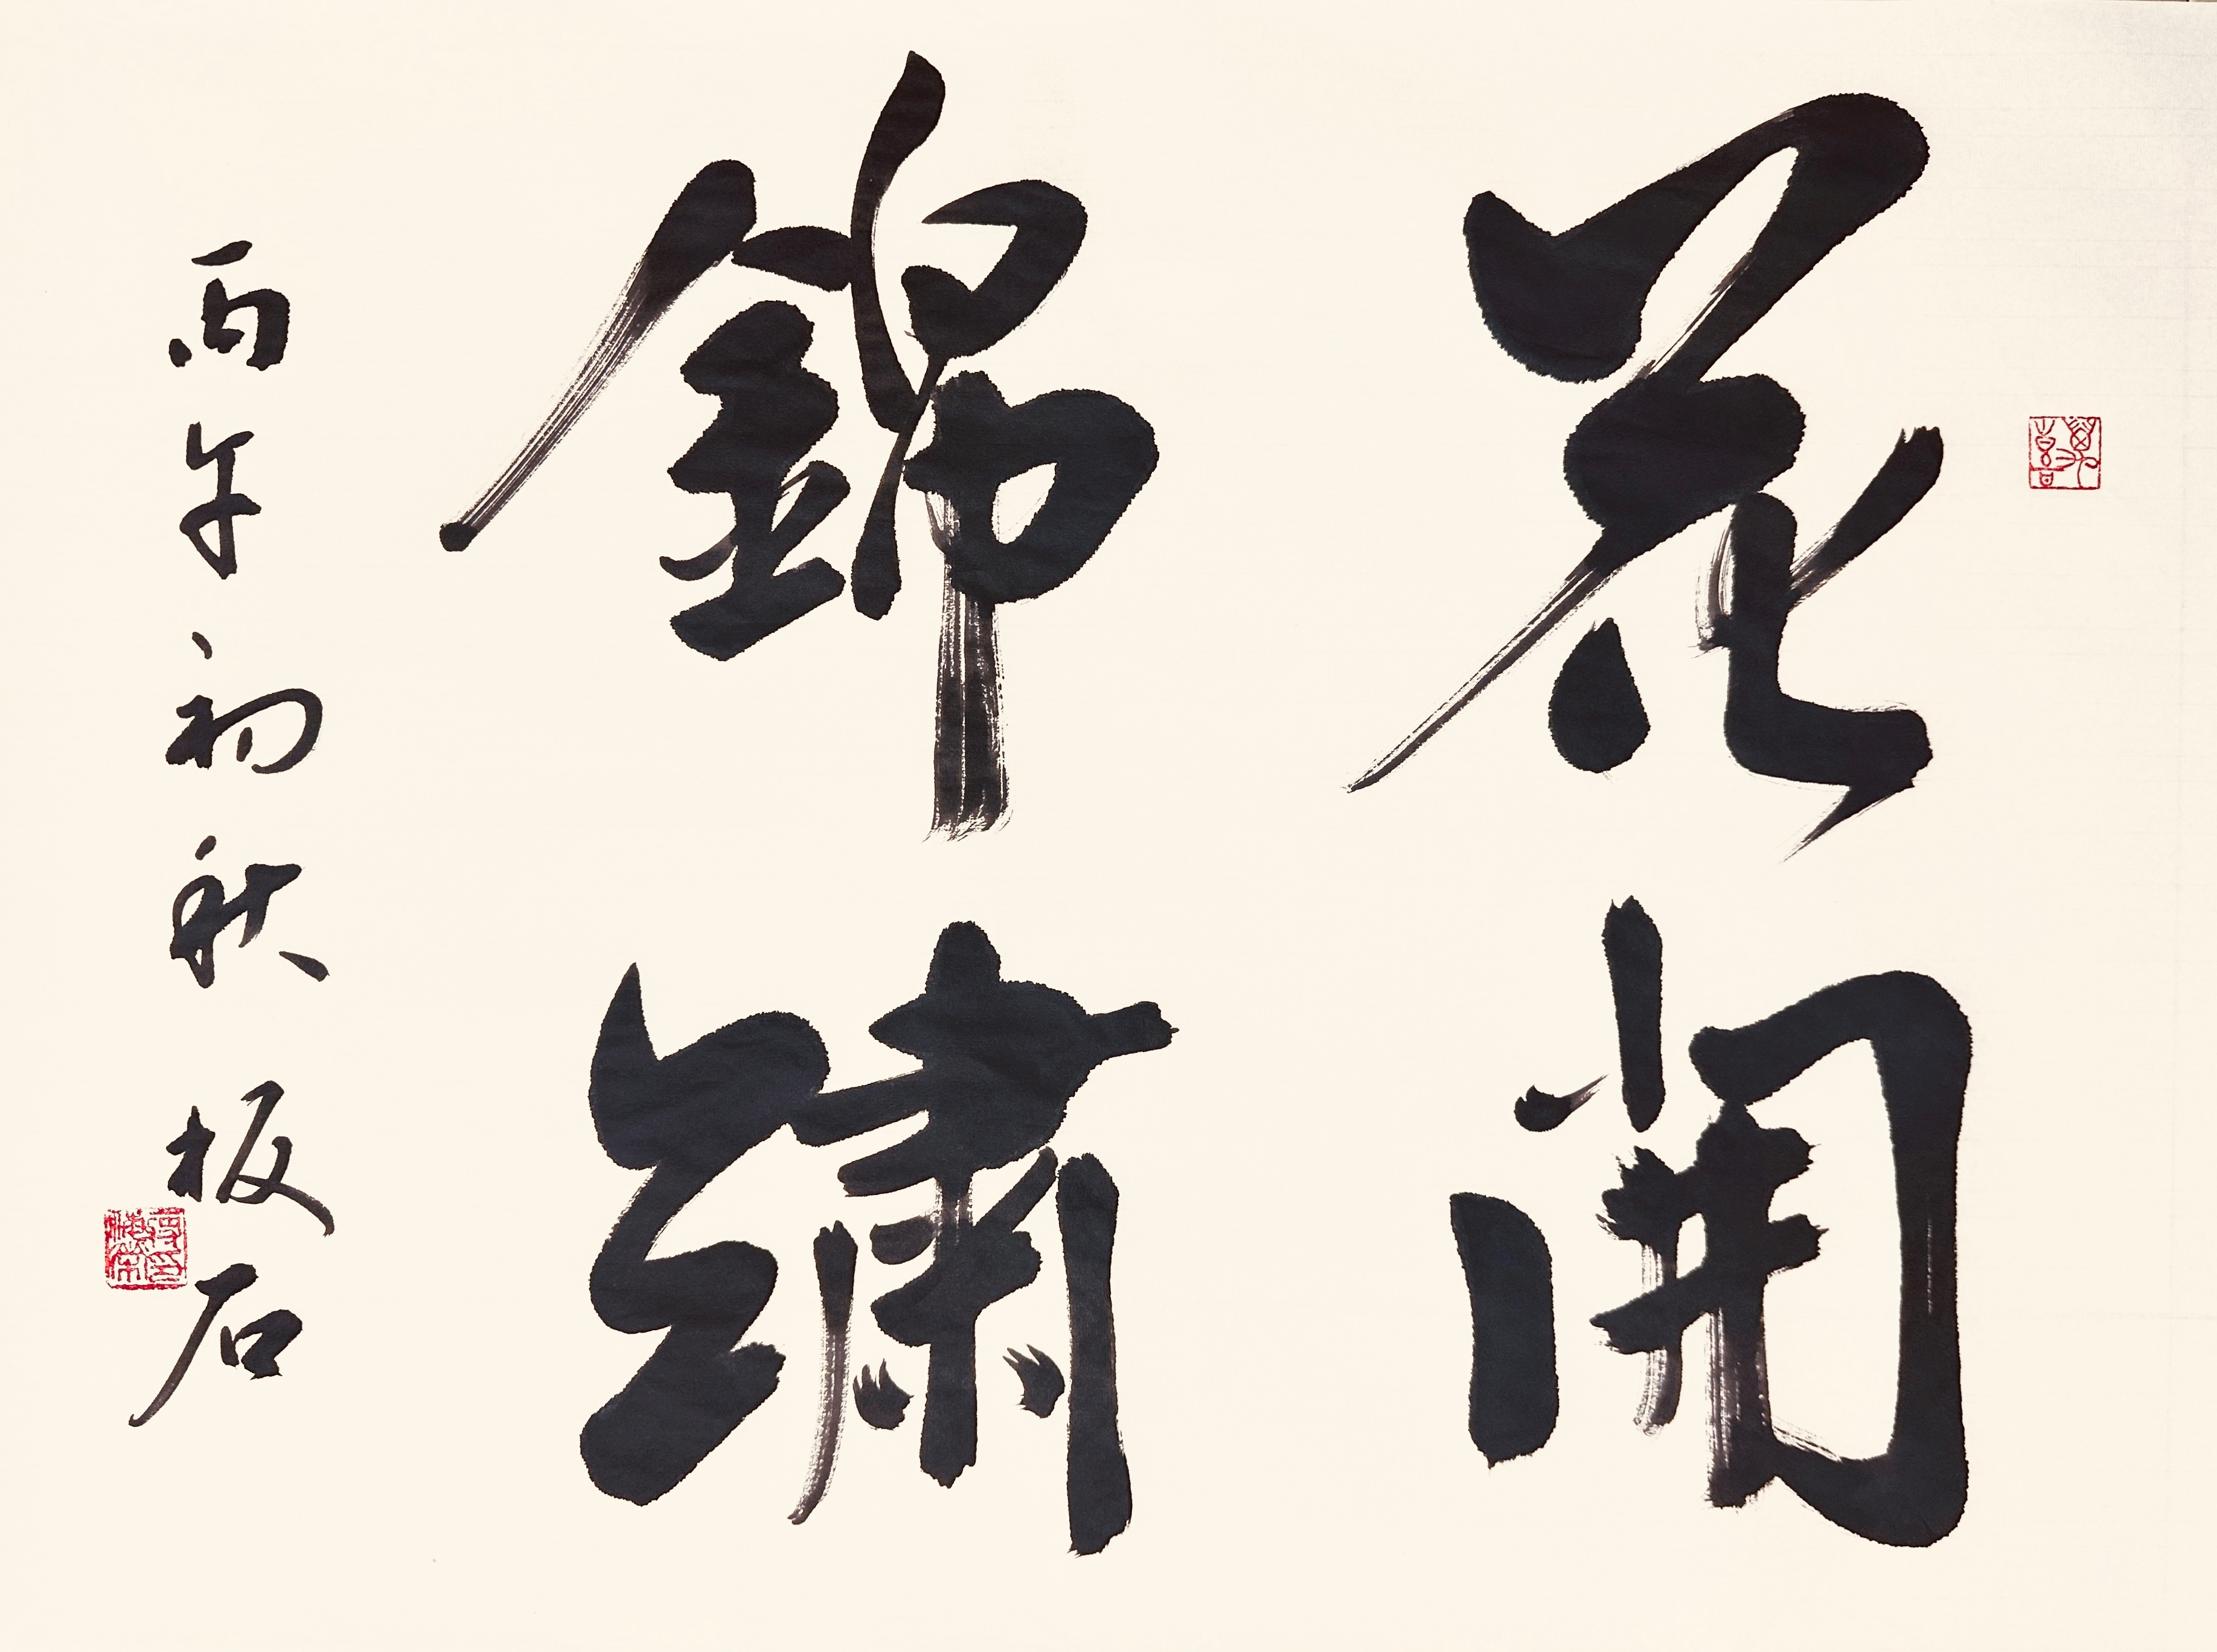 花開
錦繡
丙午初秋 板石